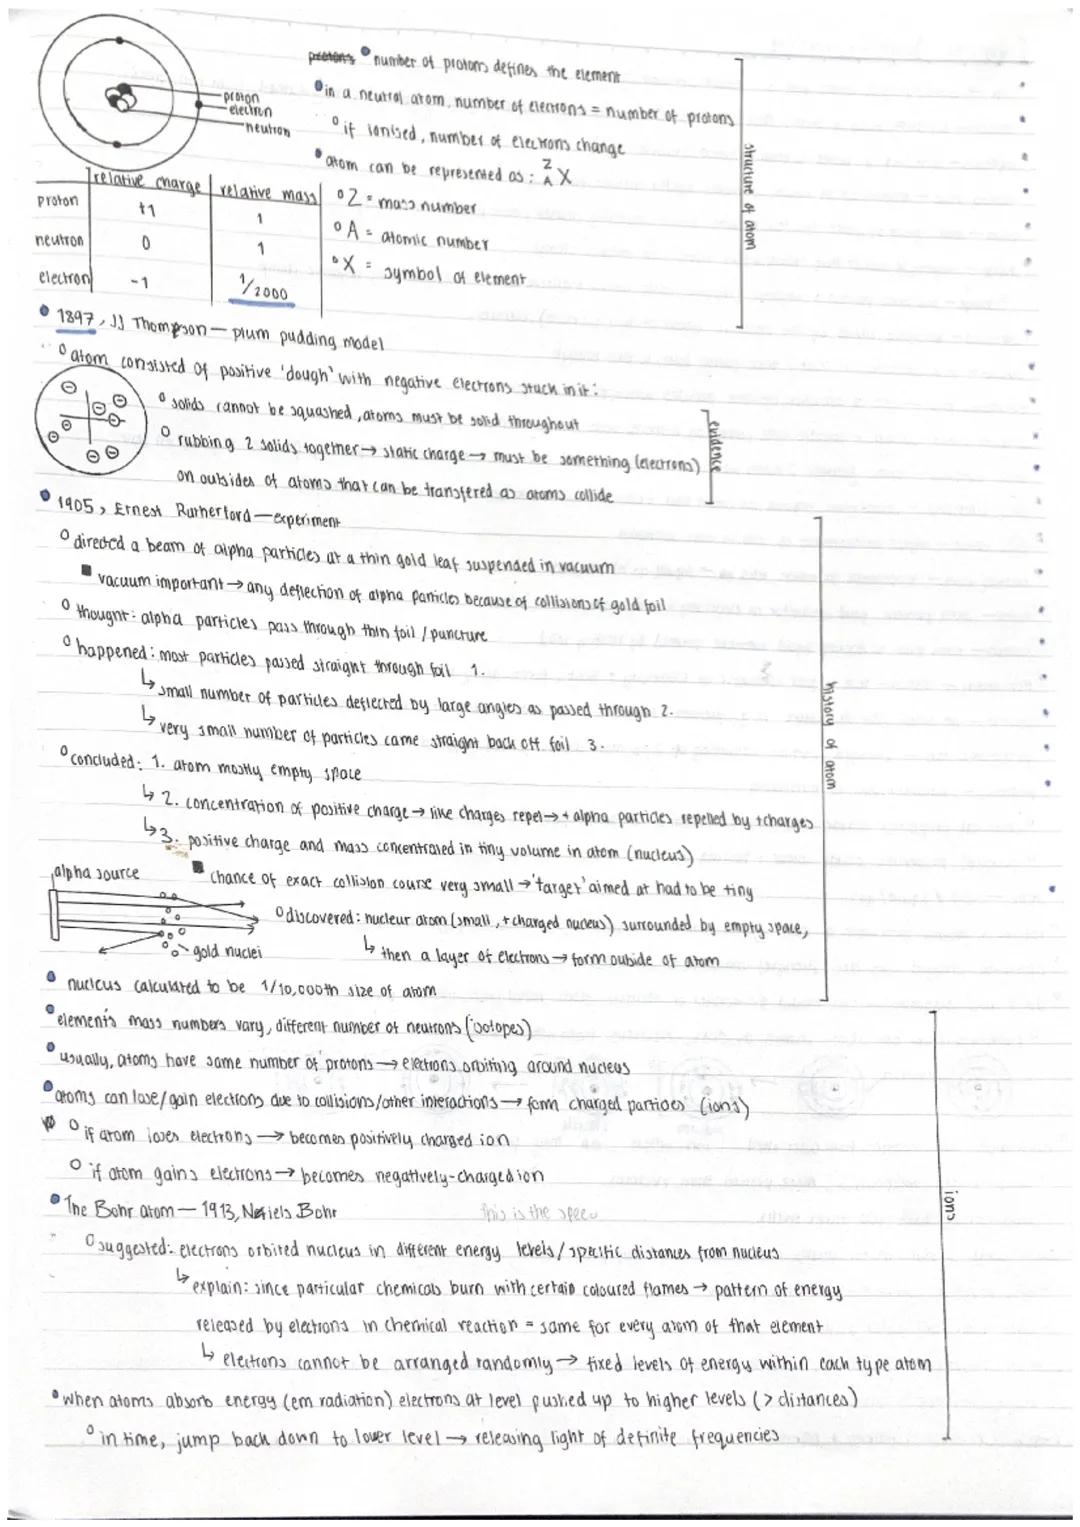 protons number of protons defines the element
in a neutral atom, number of electrons = number of protons
if ionised, number of electrons change
atom can be represented as: Z A X
Z = mass number
A = atomic number
X = symbol of element
structure of atom
proton
electron
neutron
relative charge relative mass
proton +1 1
neutron 0 1
electron -1 1/2000
1897, JJ Thompson — plum pudding model
atom consisted of positive 'dough' with negative electrons stuck in it:
solids cannot be squashed, atoms must be solid throughout
rubbing 2 solids together → static charge → must be something (electrons)
on outsides of atoms that can be transfered as atoms collide
evidence
1905, Ernest Rutherford — experiment
directed a beam of alpha particles at a thin gold leaf suspended in vacuum
vacuum important → any deflection of alpha particles because of collisions of gold foil
thought: alpha particles pass through thin foil / puncture
happened: most particles passed straight through foil 1.
↳ small number of particles deflected by large angles as passed through 2.
↳ very small number of particles came straight back off foil 3.
concluded: 1. atom mostly empty space
↳ 2. concentration of positive charge → like charges repel → + alpha particles repelled by + charges
↳ 3. positive charge and mass concentrated in tiny volume in atom (nucleus)
chance of exact collision course very small → 'target' aimed at had to be tiny
alpha source
gold nuclei
discovered: nuclear atom (small, + charged nucleus) surrounded by empty space,
↳ then a layer of electrons → form outside of atom
history of atom
nucleus calculated to be 1/10,000th size of atom
element's mass numbers vary, different number of neutrons (isotopes)
usually, atoms have same number of protons → electrons orbiting around nucleus
atoms can lose/gain electrons due to collisions/other interactions → form charged particles (ions)
if atom loses electrons → becomes positively charged ion
if atom gains electrons → becomes negatively-charged ion
The Bohr atom — 1913, Niels Bohr
this is the
suggested: electrons orbited nucleus in different energy levels/specific distances from nucleus
↳ explain: since particular chemicals burn with certain coloured flames → pattern of energy
released by electrons in chemical reaction = same for every atom of that element
↳ electrons cannot be arranged randomly → fixed levels of energy within each type atom
when atoms absorb energy (em radiation) electrons at level pushed up to higher levels (> distances)
in time, jump back down to lower level → releasing light of definite frequencies
ions